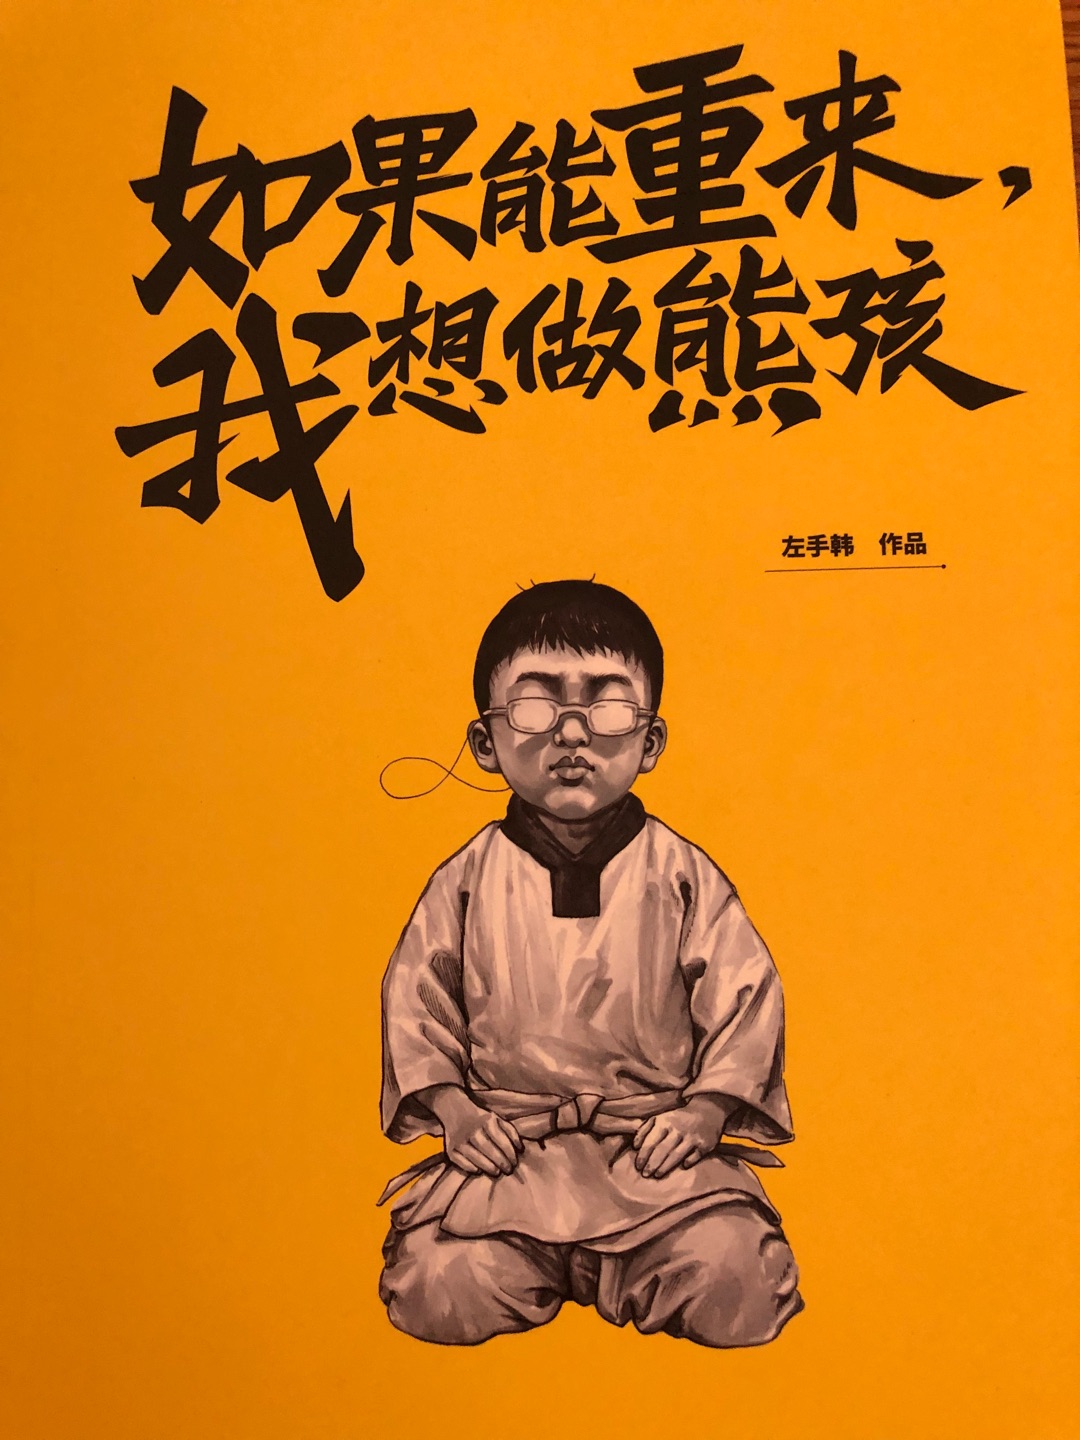 如果能重来，
我想做熊孩
左手韩 作品